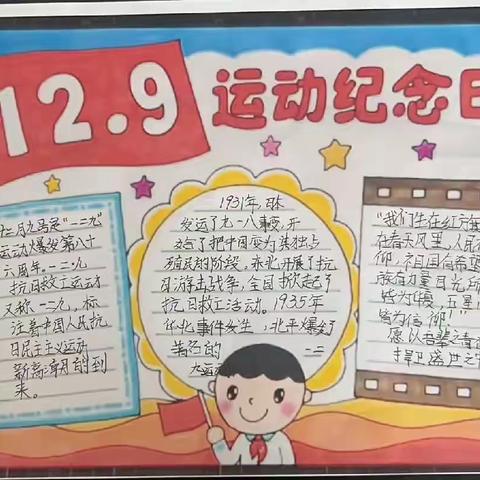 12.9
运动纪念日
十二月九号是"一二九"
运动爆发第八十
六周年。一二·九
抗日救亡运动
又称一二九,标
注着中国人民抗
日民主主义运动
新高朝的到
来。
1931年,日本
发运了九一八事变,开
始了把中国变为其独占
殖民的阶段,东北开展了抗
日游击战争,全国掀起了
抗日救亡活动。1935年
华北事件发生,北平爆发了
著名的 一二
九运动
"我们生在红旗
在春天风里,人民有
仰,祖国有希望
族有力量目光所
皆为华夏,五星
皆为信仰!"
愿以吾辈之青
捍卫盛世之